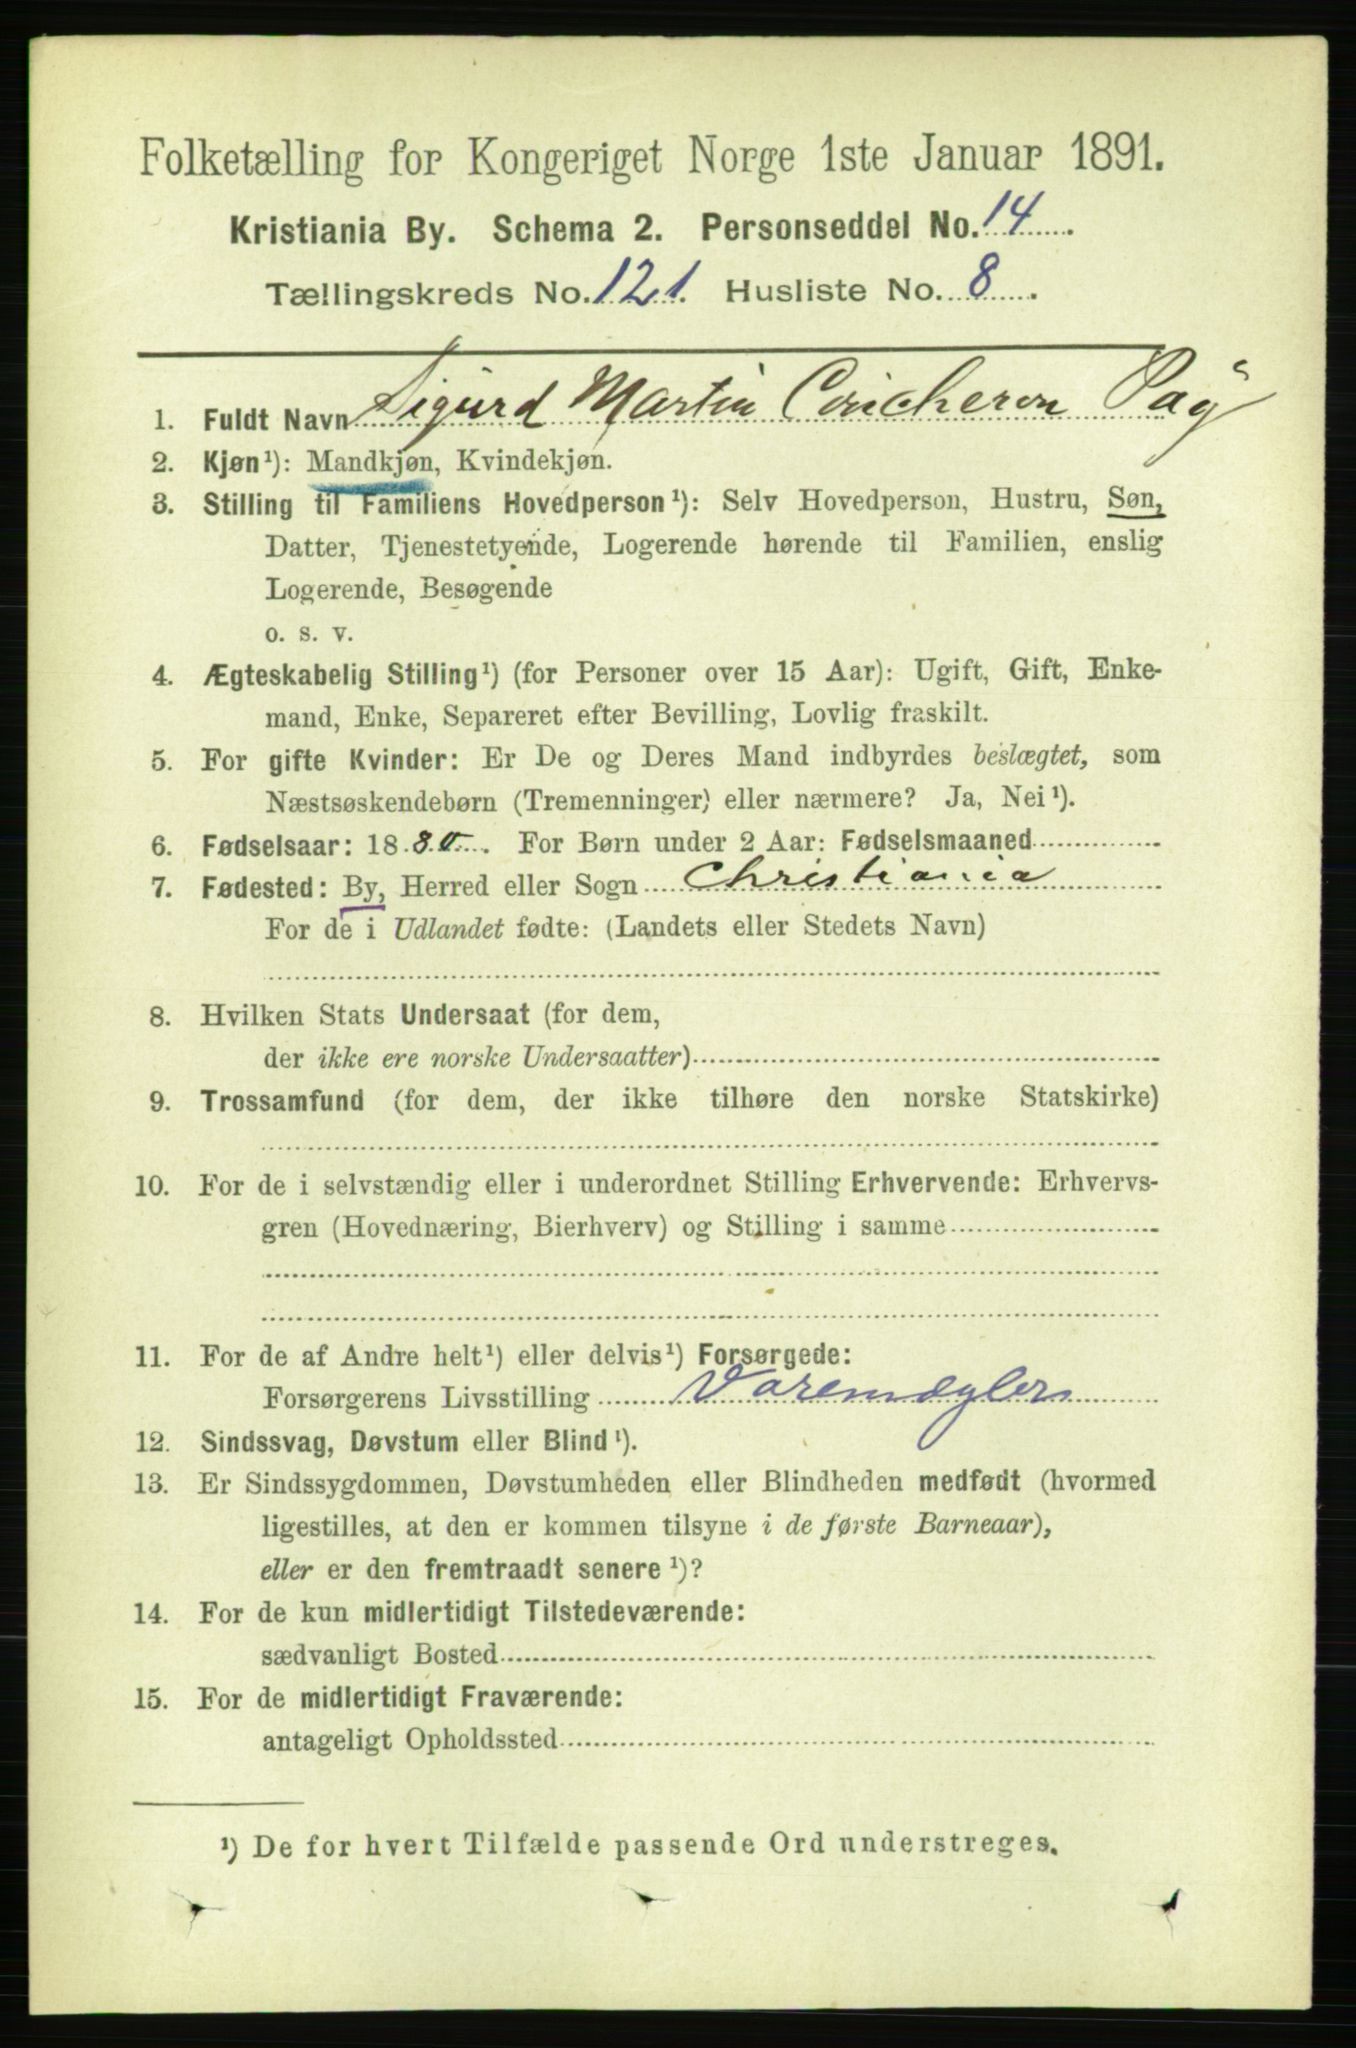 Folketælling for Kongeriget Norge 1ste Januar 1891.
Kristiania By. Schema 2. Personseddel No. 14
Tællingskreds No. 121. Husliste No. 8
1. Fuldt Navn Sigurd Martin Coucheron
2. Kjøn¹): Mandkjøn, Kvindekjøn.
3. Stilling til Familiens Hovedperson¹): Selv Hovedperson, Hustru, Søn,
Datter, Tjenestetyende, Logerende hørende til Familien, enslig
Logerende, Besøgende
o. s. v.
4. Ægteskabelig Stilling¹) (for Personer over 15 Aar): Ugift, Gift, Enke-
mand, Enke, Separeret efter Bevilling, Lovlig fraskilt.
5. For gifte Kvinder: Er De og Deres Mand indbyrdes beslægtet, som
Næstsøskendebørn (Tremenninger) eller nærmere? Ja, Nei¹).
6. Fødselsaar: 1880. For Børn under 2 Aar: Fødselsmaaned
7. Fødested: By, Herred eller Sogn Christiania
For de i Udlandet fødte: (Landets eller Stedets Navn)
8. Hvilken Stats Undersaat (for dem,
der ikke ere norske Undersaatter)
9. Trossamfund (for dem, der ikke tilhøre den norske Statskirke)
10. For de i selvstændig eller i underordnet Stilling Erhvervende: Erhvervs-
gren (Hovednæring, Bierhverv) og Stilling i samme
11. For de af Andre helt¹) eller delvis¹) Forsørgede:
Forsørgerens Livsstilling Varemægler
12. Sindssvag, Døvstum eller Blind¹).
13. Er Sindssygdommen, Døvstumheden eller Blindheden medfødt (hvormed
ligestilles, at den er kommen tilsyne i de første Barneaar),
eller er den fremtraadt senere¹)?
14. For de kun midlertidigt Tilstedeværende:
sædvanligt Bosted
15. For de midlertidigt Fraværende:
antageligt Opholdssted
¹) De for hvert Tilfælde passende Ord understreges.